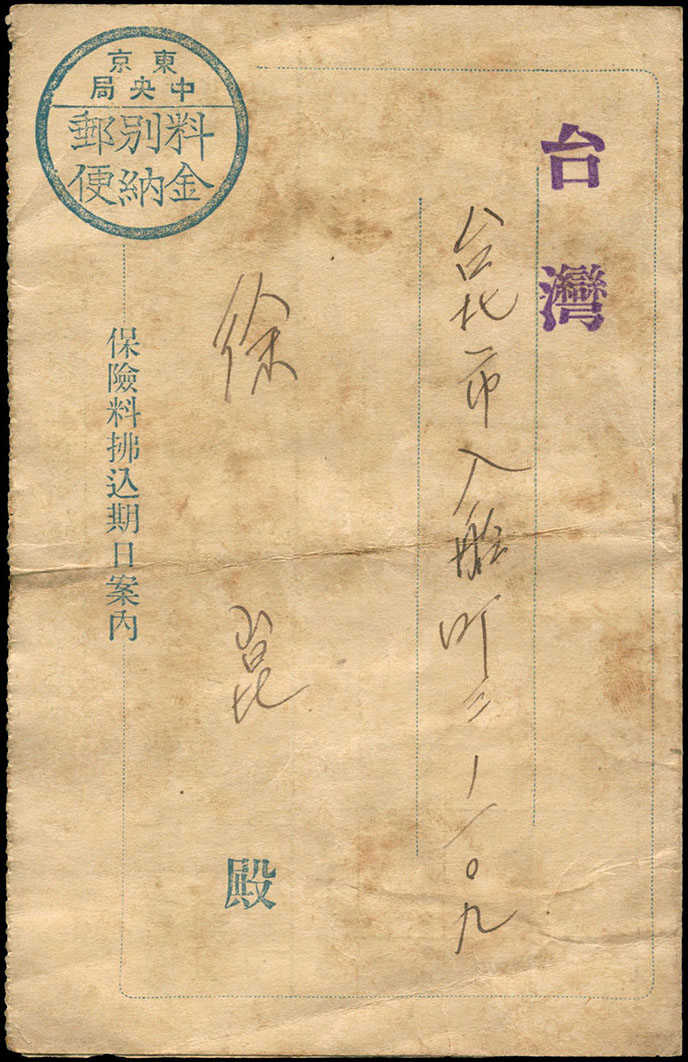 台灣
台北市入船町三ノ一〇九
徐崑殿
東京
中央局
料金別納郵便
保險料拂込期日案内